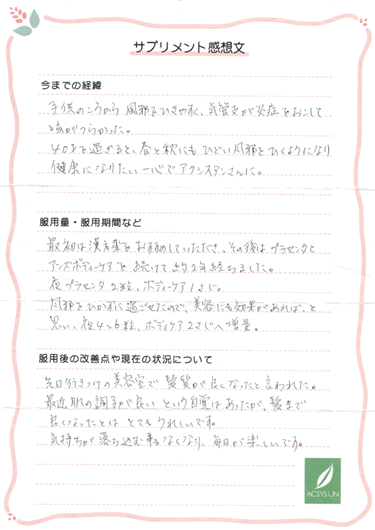 サプリメント感想文
今までの経緯
子供のころから 風邪をひきやすく、気管支が炎症をおこして
咳がつらかった。
40才を過ぎると、春と秋にもひどい風邪をひくようになり
健康になりたい一心でアクシスアンさんに。
服用量・服用期間など
最初は漢方薬をおすすめしていただき、その後はプラセンタと
アンズボディーケアを続けて約2年経ちました。
夜プラセンタ2粒、ボディケア1さじ。
風邪をひかずに過ごせたので、美容にも効果があれば、と
思い、夜4~6粒、ボディケア2さじへ増量。
服用後の改善点や現在の状況について
先日行きつけの美容室で 髪質が良くなったと言われた。
最近肌の調子が良い という自覚はあったが、髪まで
良くなったとは とてもうれしいです。
気持ちが落ち込む事もなくなり、毎日が楽しいです。
ACSYS UN